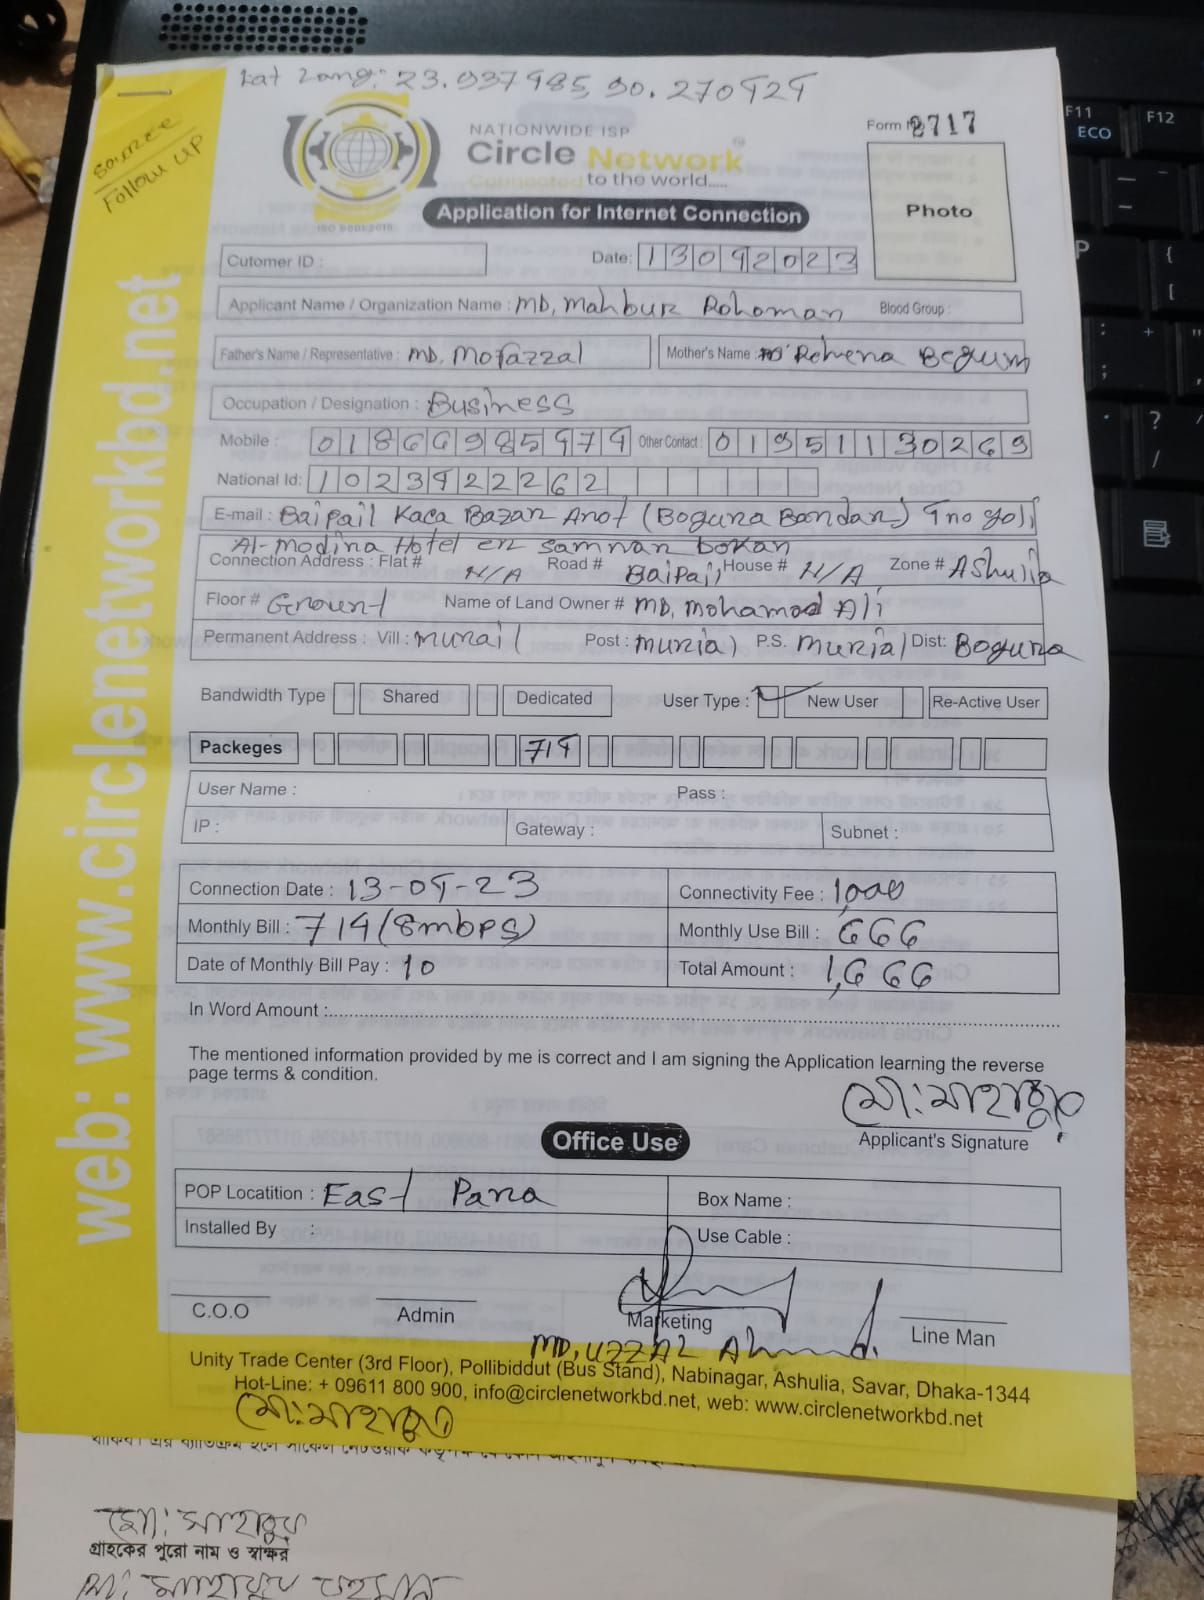 Lat Long: 23.937485, 90.270424
source
Follow UP
NATIONWIDE ISP
Circle Network
Connected to the world.....
ISO 9001:2015
Form 2717
Photo
Application for Internet Connection
Cutomer ID :
Date: 13042023
Applicant Name / Organization Name : MD, Mahbur Rohoman Blood Group :
Father's Name / Representative : MD. Mofazzal
Mother's Name : Rehena Begum
Occupation / Designation : Business
Mobile : 01866985474 Other Contact : 01951130269
National Id: 1023422262
E-mail : Baipail Kaca Bazar Arot (Boguna Bandar) 4 no goli
Al-Modina Hotel er samnar Dokan
Connection Address : Flat # N/A Road # Baipail House # N/A Zone # Ashulia
Floor # Grount Name of Land Owner # MD, Mohamad Ali
Permanent Address : Vill : Murail Post : Murial P.S. Murial Dist: Boguna
Bandwidth Type Shared Dedicated User Type : New User Re-Active User
Packeges 714
User Name : Pass :
IP : Gateway : Subnet :
Connection Date : 13-04-23 Connectivity Fee : 1,000
Monthly Bill : 714 (8mbps) Monthly Use Bill : 666
Date of Monthly Bill Pay : 10 Total Amount : 1,666
In Word Amount :
The mentioned information provided by me is correct and I am signing the Application learning the reverse
page terms & condition.
Applicant's Signature
Office Use
POP Locatition : East Para Box Name :
Installed By : Use Cable :
C.O.O Admin Marketing Line Man
MD, UZZAL Ahmed.
Unity Trade Center (3rd Floor), Pollibiddut (Bus Stand), Nabinagar, Ashulia, Savar, Dhaka-1344
Hot-Line: + 09611 800 900, info@circlenetworkbd.net, web: www.circlenetworkbd.net
web: www.circlenetworkbd.net
গ্রাহকের পুরো নাম ও স্বাক্ষর
F11
ECO
F12